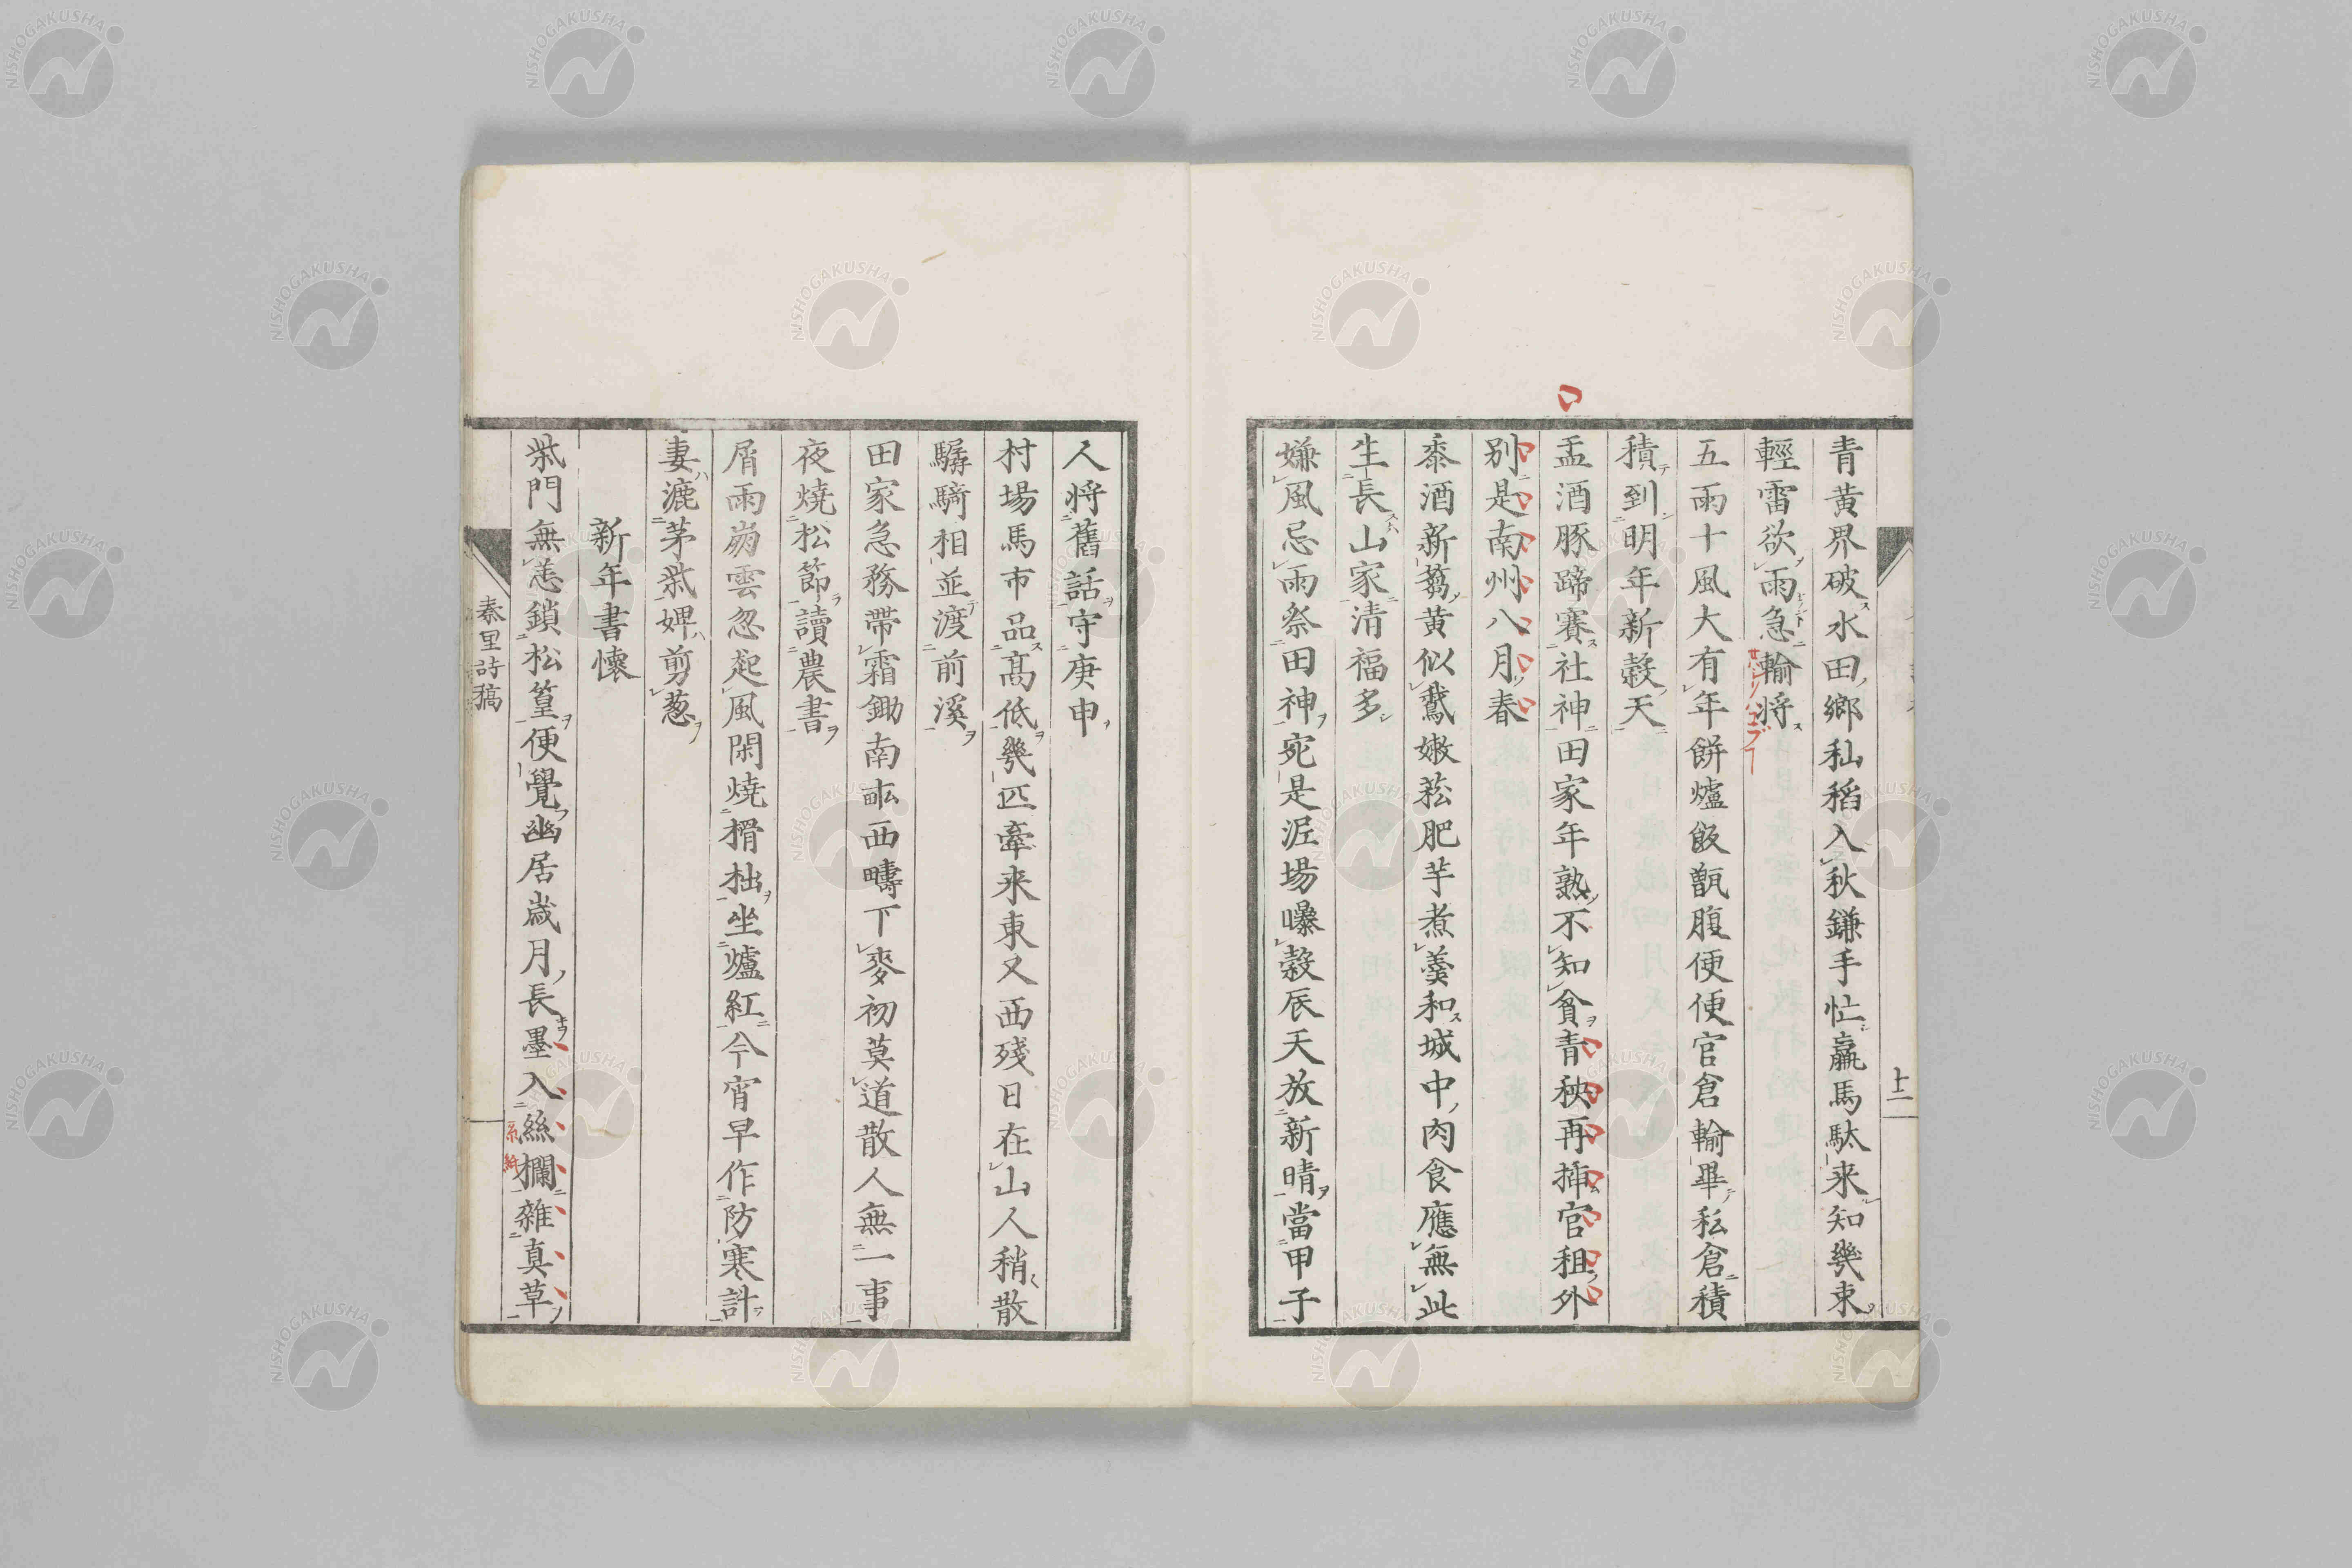 青黄界破水田郷秈稻入秋鎌手忙羸馬馱来知幾束
輕雷欲雨急輸将
五雨十風大有年餅爐飯甑腹便便官倉輸畢私倉積
積到明年新穀天
盂酒豚蹄賽社神田家年熟不知貧青秧再挿官租外
別是南州八月春
黍酒新蒭黄似鵞嫩菘肥芋煮羹和城中肉食應無此
生長山家清福多
嫌風忌雨祭田神宛是涊場曝穀辰天放新晴當甲子
十二
人将舊話守庚申
村場馬市品髙低幾匹牽来東又西殘日在山人稍散
驏騎相並渡前溪
田家急務帶霜鋤南畝西疇下麥初莫道散人無一事
夜燒松節讀農書
屑雨崩雲忽起風閑燒榾柮坐爐紅今宵早作防寒計
妻漉茅柴婢剪葱
新年書懷
柴門無恙鎖松篁便覺幽居歳月長墨入絲欄雜真草
秦里詩稿